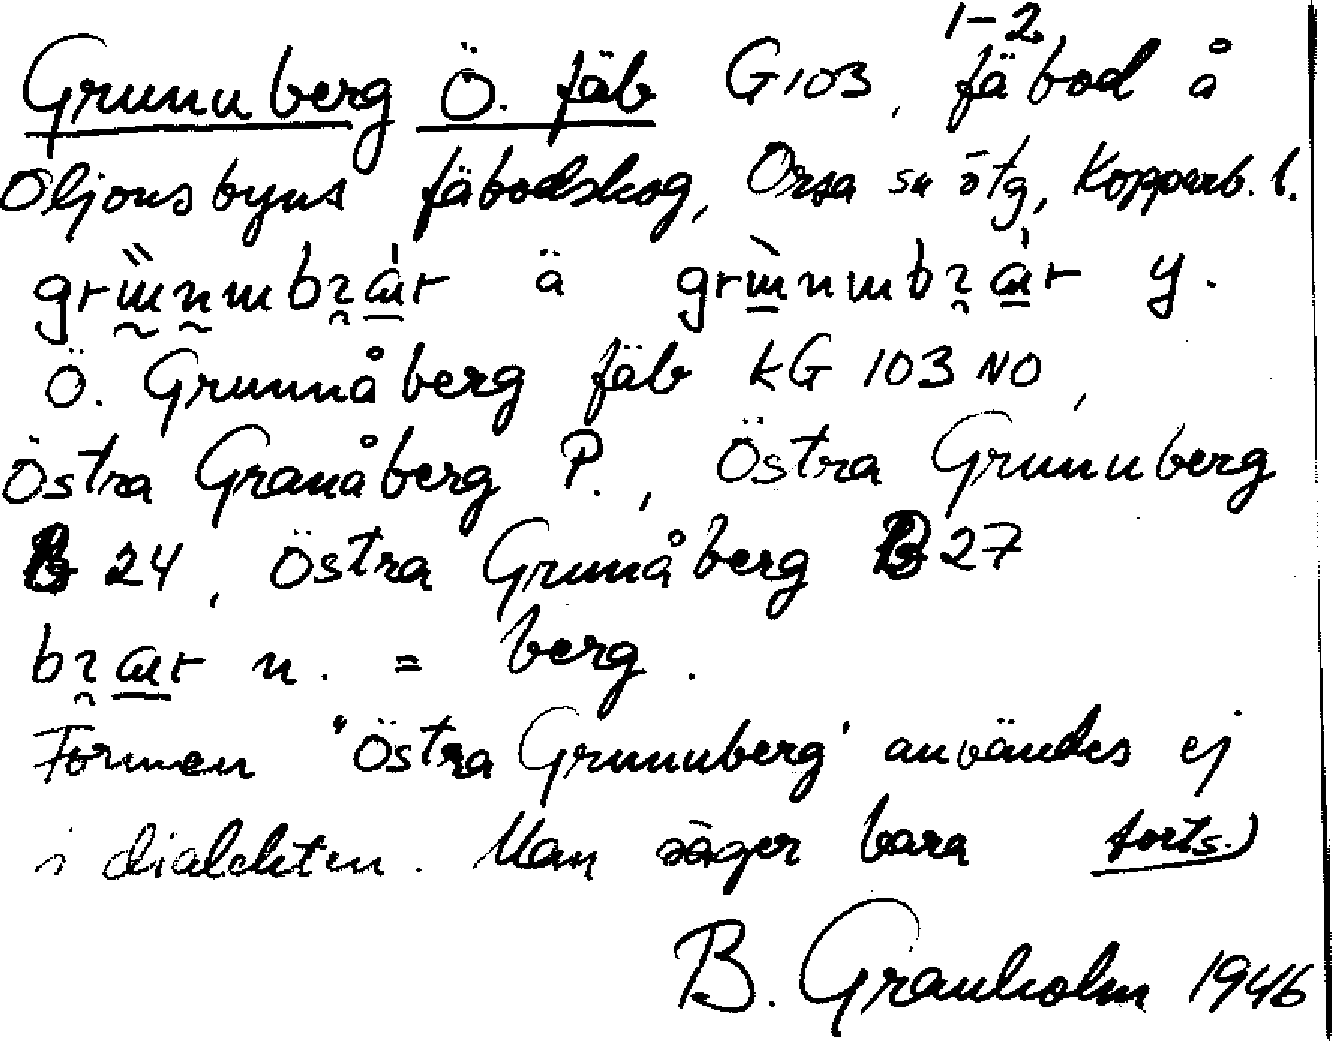 1-2
Grunuberg Ö. fäb G103, fäbod å
Oljonsbyns fäbodskog, Orsa sn ötg, Kopparb. l.
ä y.
Ö. Grunnåberg fäb kG 103 NO,
Östra Granåberg P., Östra Grunuberg
B 24, Östra Grunåberg B 27
n. = berg.
Formen "Östra Grunuberg" användes ej
i dialekten. Man säger bara forts.)
B. Granholm 1946